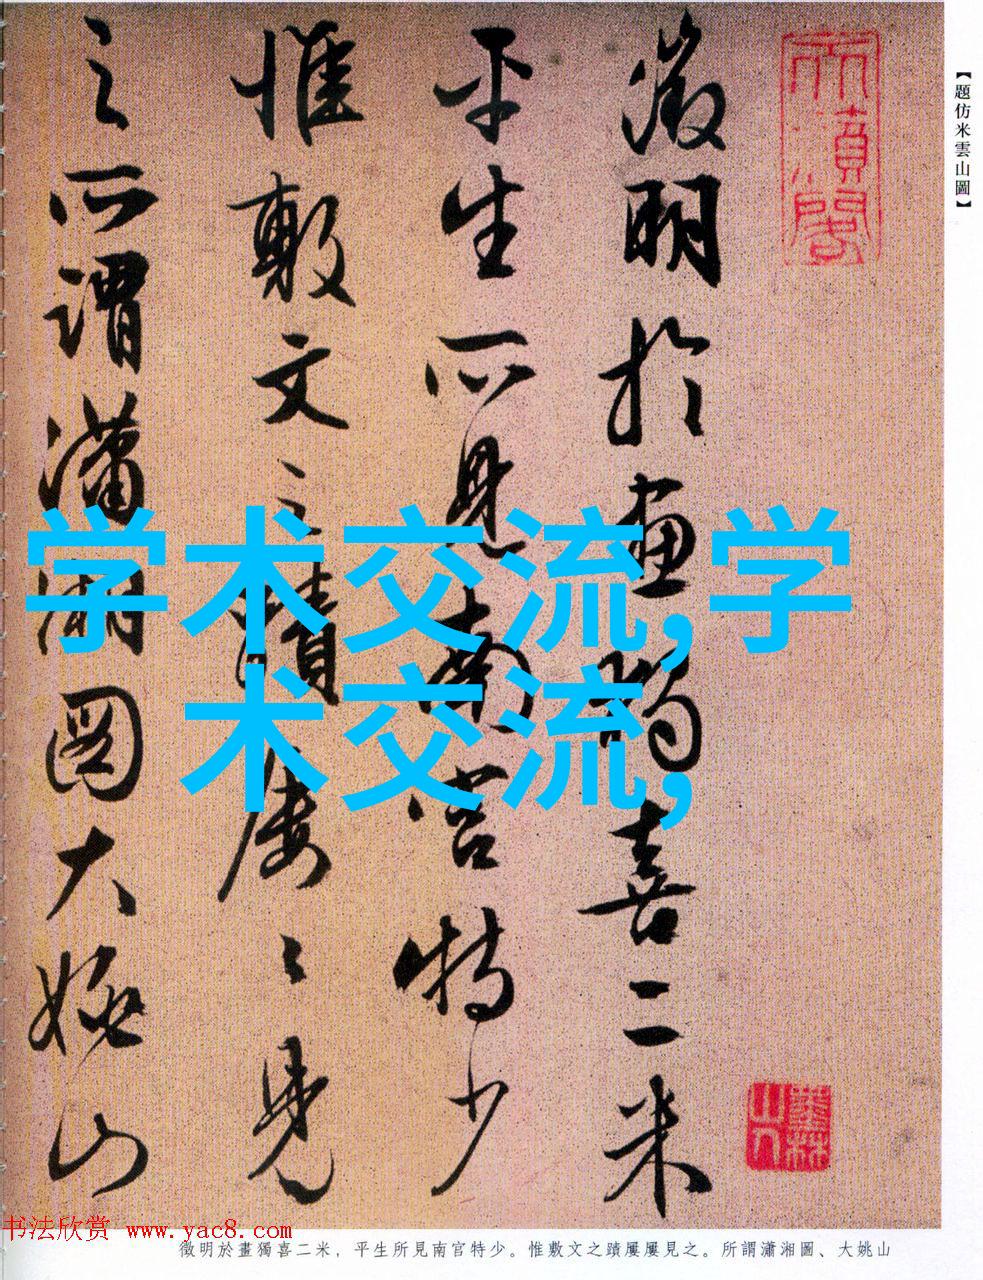 【題仿米雲山圖】
徵明於畫獨喜二米
平生所見南宮特少
惟敷文之蹟屢〻見
之所謂瀟湘圖大姚山
墨林山人
学术交流,学
术交流,
书法欣赏 www.yac8.com
徵明於畫獨喜二米，平生所見南宮特少。惟敷文之蹟屢屢見之。所謂瀟湘圖、大姚山